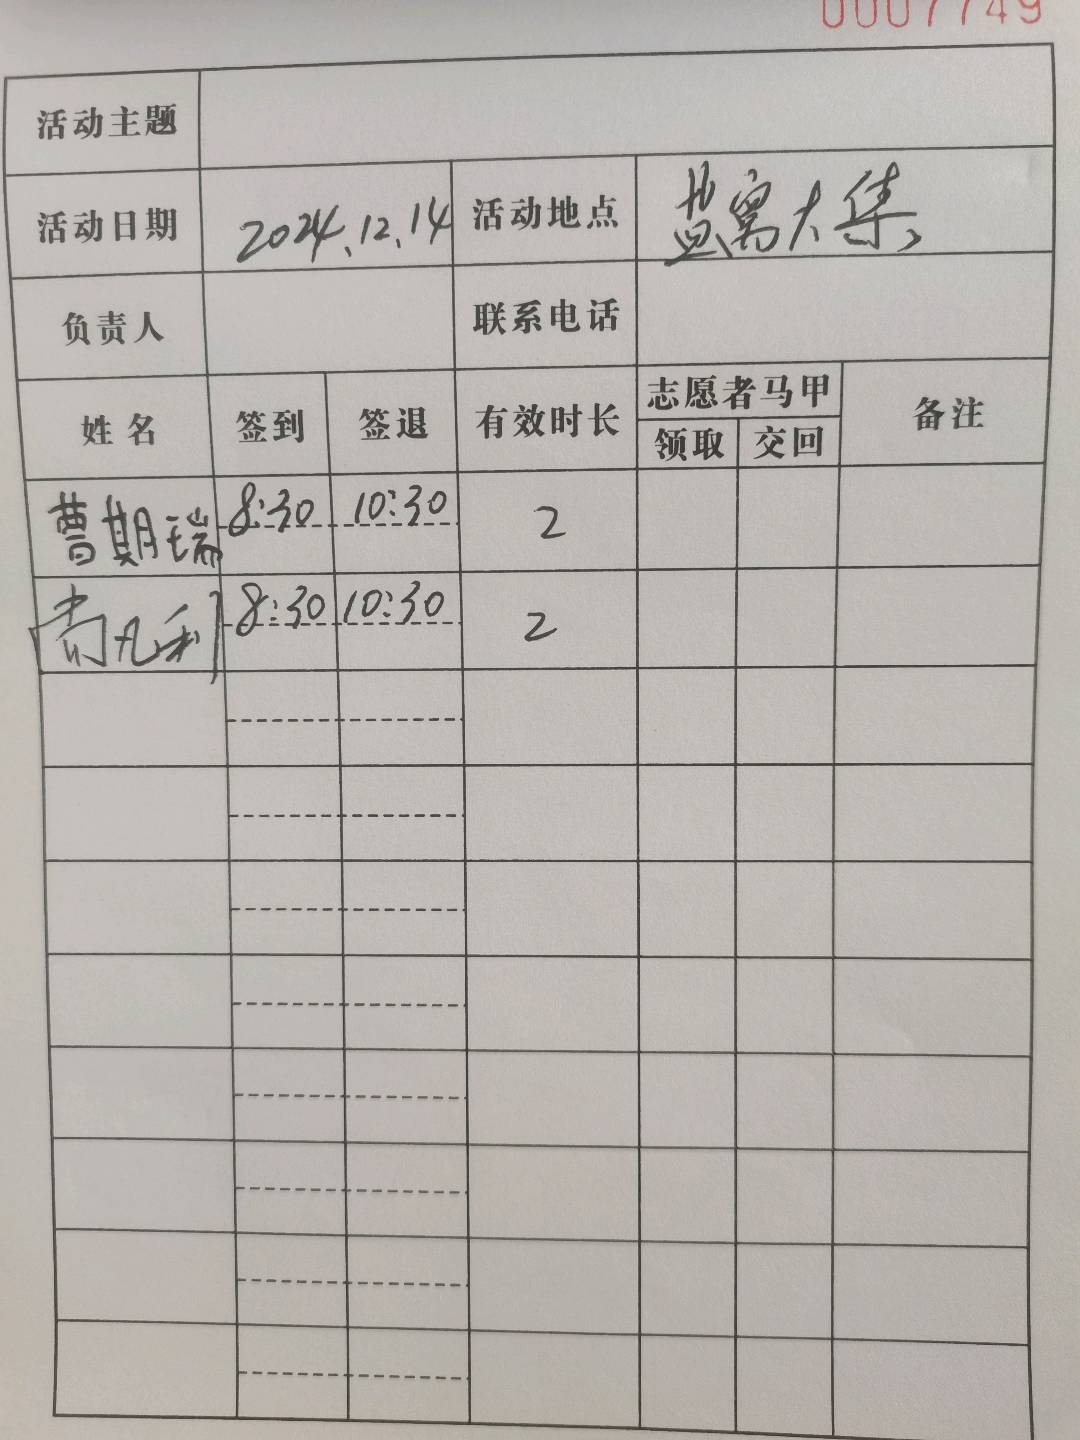 0007749
活动主题
活动日期 2024.12.14 活动地点 盐窝大集
负责人 联系电话
姓名 签到 签退 有效时长 志愿者马甲 备注
领取 交回
曹期瑞 8:30 10:30 2
8:30 10:30 2